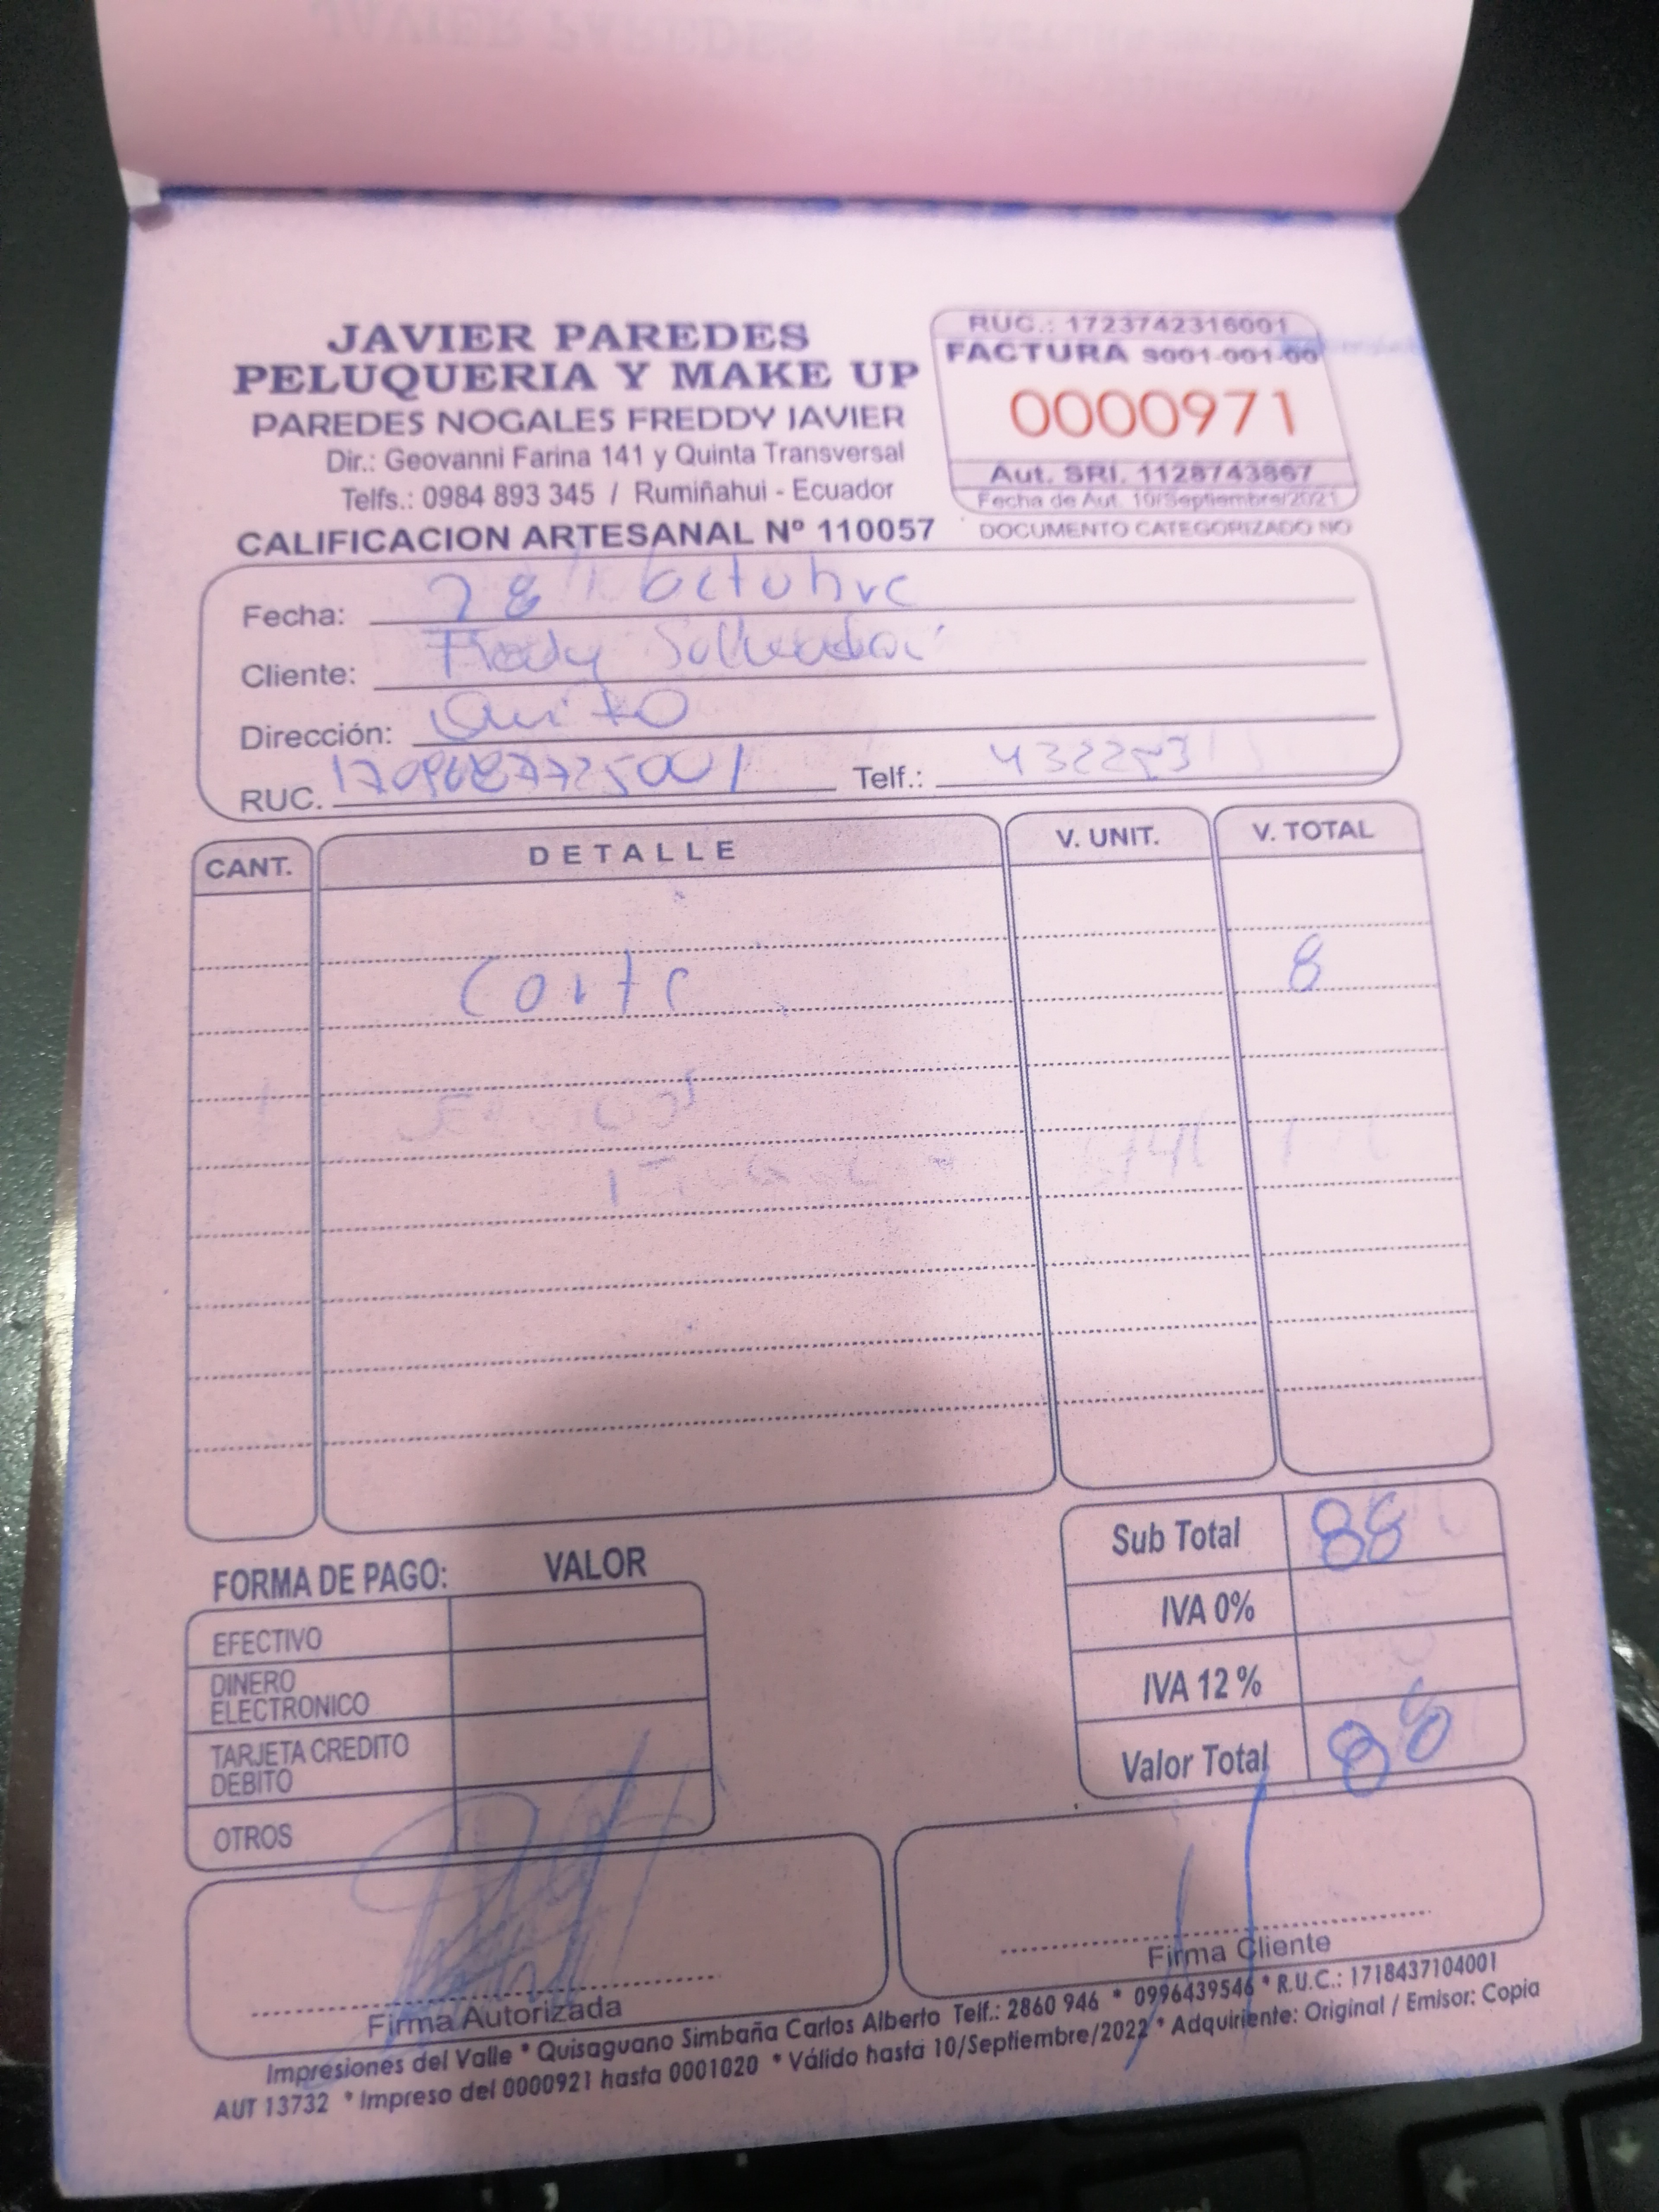 JAVIER PAREDES
PELUQUERIA Y MAKE UP
PAREDES NOGALES FREDDY JAVIER
Dir.: Geovanni Farina 141 y Quinta Transversal
Telfs.: 0984 893 345 / Rumiñahui - Ecuador
CALIFICACION ARTESANAL Nº 110057
RUC.: 1723742316001
FACTURA S001-001-00
0000971
Aut. SRI. 1128743867
Fecha de Aut. 10/Septiembre/2021
DOCUMENTO CATEGORIZADO NO
Fecha: 28 octubre
Cliente: Fredy
Dirección: Quito
RUC.
Telf.:
CANT. DETALLE V. UNIT. V. TOTAL
Corte 8
Sub Total 88
IVA 0%
IVA 12 %
Valor Total 88
FORMA DE PAGO: VALOR
EFECTIVO
DINERO ELECTRONICO
TARJETA CREDITO DEBITO
OTROS
Firma Autorizada
Firma Cliente
Impresiones del Valle * Quisaguano Simbaña Carlos Alberto Telf.: 2860 946 * 0996439546 * R.U.C.: 1718437104001
AUT 13732 * Impreso del 0000921 hasta 0001020 * Válido hasta 10/Septiembre/2022 * Adquiriente: Original / Emisor: Copia